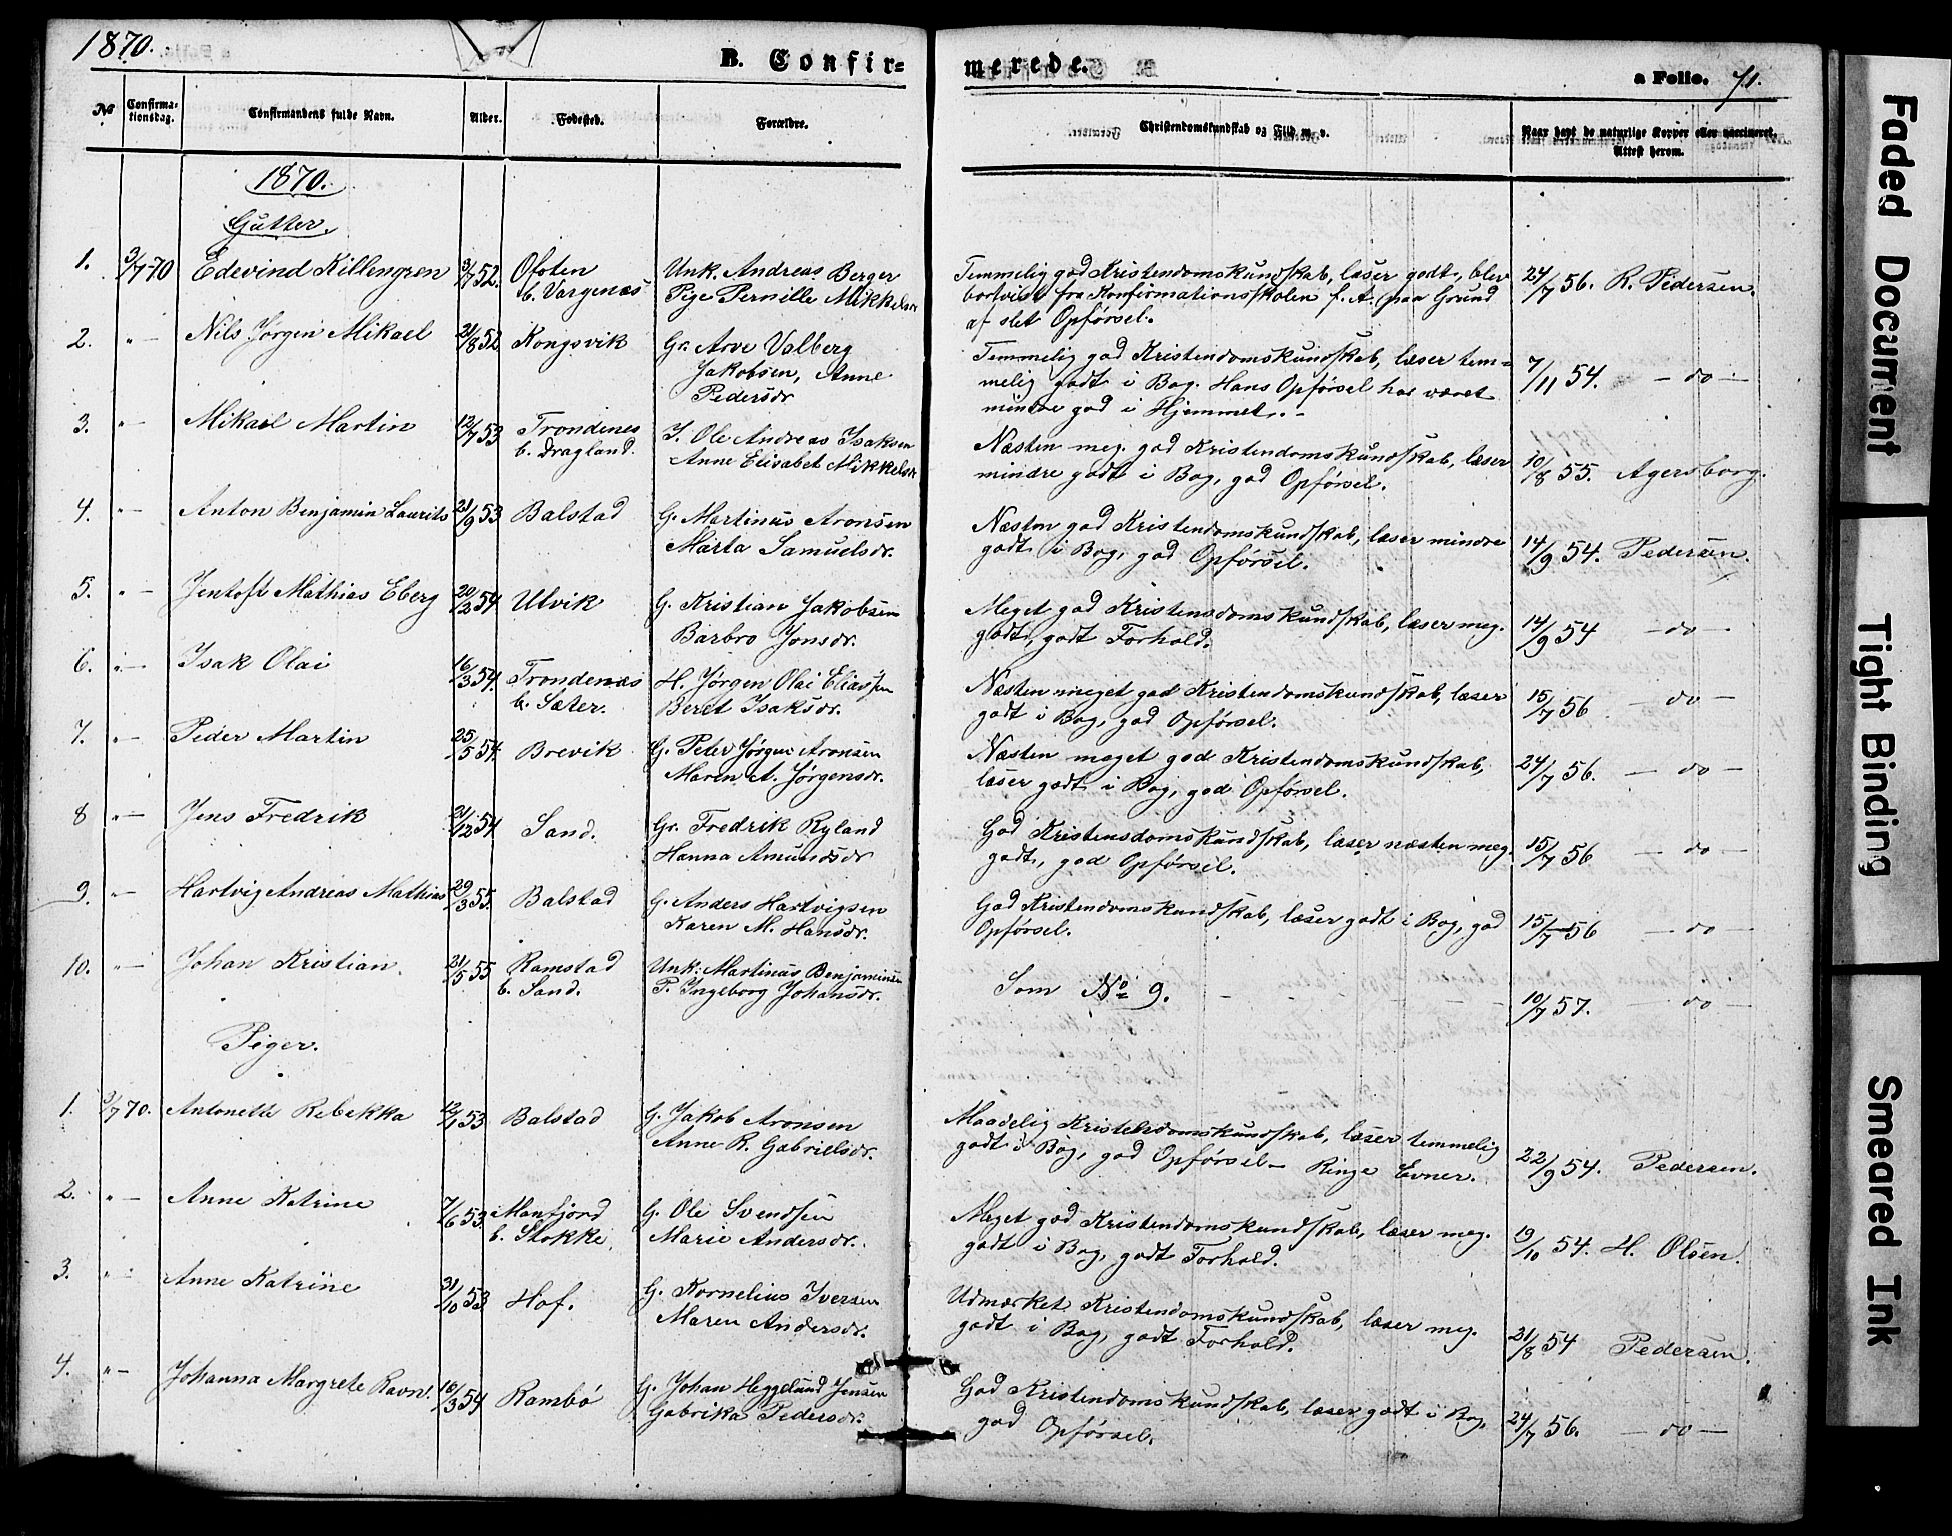 1870.
B. Confir=
merede.
a Folio. 71.
No
Confirma-
tionsdag.
Confirmandens fulde Navn.
Alder.
Fødested.
Forældre.
Christendomskundskab og Flid m. v.
Naar havt de naturlige Kopper eller vaccineret.
Attest herom.
1870.
Gutter.
1. 3/7 70 Edevind Killengren 3/7 52. Ofoten Unk. Andreas Berger Temmelig god Kristendomskundskab, læser godt, blev 24/7 56. R. Pedersen.
b. Vargenæs Pige Pernille Mikkelsdr bortvist fra Konfirmationsskolen f. A. paa Grund
af slet Opførsel.
2. " — Nils Jørgen Mikael 21/8 52 Kongsvik Gr. Arve Valberg Temmelig god Kristendomskundskab, læser tem=
Jakobsen, Anne melig godt i Bog. Hans Opførsel har været 7/11 54. — do —
Pedersdr mindre god i Hjemmet.
3. " — Mikael Martin 12/7 53 Trondenes I. Ole Andreas Isaksen Næsten meg. god Kristendomskundskab, læser 10/8 55. Agersborg.
b. Dragland. Anne Elisabet Mikkelsdr mindre godt i Bog, god Opførsel.
4. " — Anton Benjamin Laurits 21/9 53 Balstad G. Martinus Aronsen Næsten god Kristendomskundskab, læser mindre 14/9 54. Pedersen.
Marta Samuelsdr. godt i Bog, god Opførsel.
5. " — Jentoft Mathias Eberg 20/2 54 Ulvik G. Kristian Jakobsen Meget god Kristensdomskundskab, læser meg. 14/9 54 — do —
Barbro Jonsdr. godt, godt Forhold.
6. " — Isak Olai 16/3 54. Trondenæs H. Jørgen Olai Eliassen Næsten meget god Kristendomskundskab, læser 15/7 56 — do —
b. Sæter. Beret Isaksdr. godt i Bog, god Opførsel.
7. " — Peder Martin 25/5 54. Brevik G. Peter Jørgen Aronsen Næsten meget god Kristendomskundskab, 24/7 56. — do —
Maren A. Jørgensdr. læser godt i Bog, god Opførsel.
8 " — Jens Fredrik 21/12 54. Sand. Gr. Fredrik Ryland God Kristensdomskundskab, læser næsten meg. 15/7 56 — do —
Hanna Amundsdr godt, god Opførsel.
9. " — Hartvig Andreas Mathias 29/3 55. Balstad G. Anders Hartvigsen God Kristendomskundskab, læser godt i Bog, god 15/7 56 — do —
Karen M. Hansdr. Opførsel.
10. " — Johan Kristian. 21/5 55 Ramstad Unk: Martinus Benjaminsen Som No 9. 10/7 57. — do —
b. Sand. P. Ingeborg Johansdr.
Piger.
1. 3/7 70. Antonette Rebekka 12/1 53 Balstad G. Jakob Aronsen Maadelig Kristendomskundskab, læser temmelig
Anne R. Gabrielsdr. godt i Bog, god Opførsel — Ringe Evner. 22/9 54. Pedersen.
2. " — Anne Katrine 7/6 53. Manfjord G. Ole Svendsen Meget god Kristendomskundskab, læser meg. 19/10 54. H. Olsen.
b. Stokke. Marie Andersdr. godt i Bog, godt Forhold.
3. " — Anne Katrine 31/10 53 Hof. G. Kornelius Iversen Udmærket Kristendomskundskab, læser meg. 21/8 54 Pedersen.
Maren Andersdr. godt i Bog, godt Forhold.
4. " — Johanna Margrete Ravn. 16/3 54 Rambø G. Johan Heggelund Jensen God Kristendomskundskab, læser godt i Bog, 24/7 56. — do —
Gabrika Pedersdr. god Opførsel.
Faded Document
Tight Binding
Smeared Ink